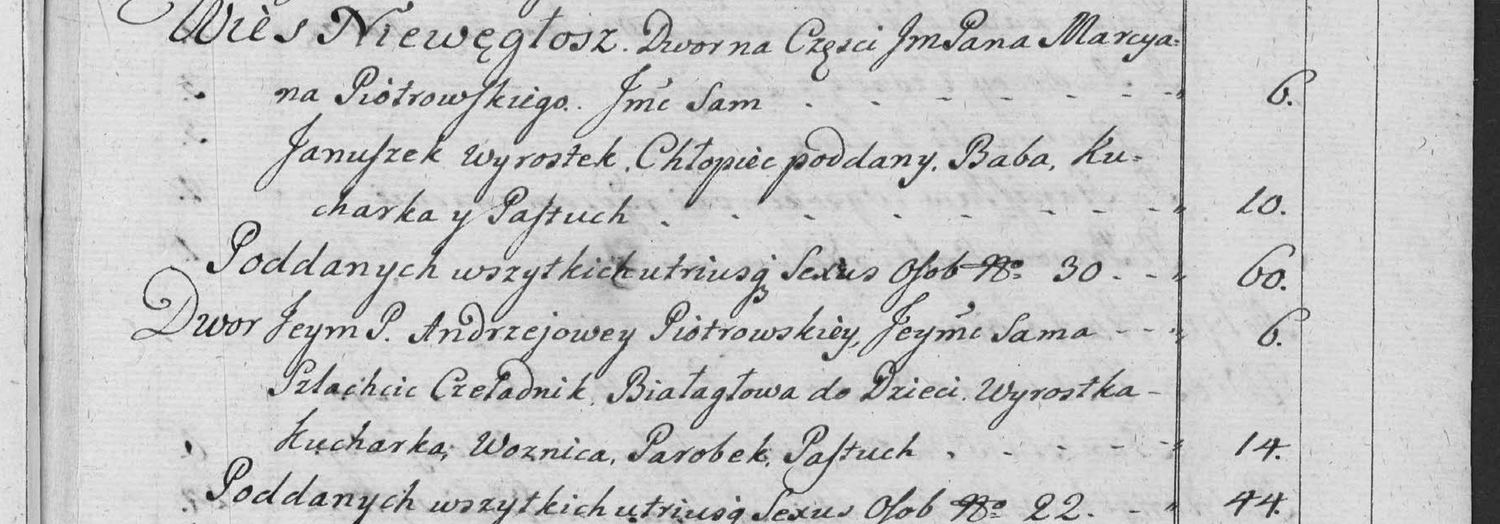 Wieś Niewęgłosz. Dwor na Części JmPana Marcya=
na Piotrowskiego. Jmć Sam - - - - - - " 6.
Januszek Wyrostek, Chłopiec poddany, Baba, Ku=
charka y Pastuch - - - - - - - " 10.
Poddanych wszytkich utriusq Sexus Osob No 30. - " 60.
Dwor Jeym P. Andrzejowey Piotrowskiey, Jeymć Sama - - " 6.
Szlachcic Czeladnik, Białagłowa do Dzieci. Wyrostka -
Kucharka, Woznica, Parobek, Pastuch - - - - - " 14.
Poddanych wszytkich utriusq Sexus Osob No 22. - " 44.